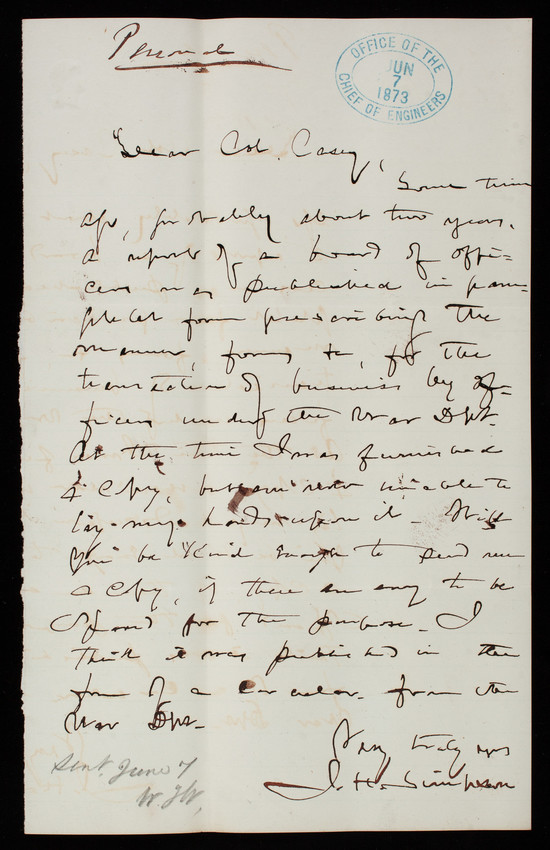 Personal
OFFICE OF THE
JUN
7
1873
CHIEF OF ENGINEERS
Dear Col. Casey,
Some time
ago, probably about two years,
a report of a board of offi-
cers was published in pam-
phlet form prescribing the
manner, forms &c, for the
transaction of business by of-
ficers under the War Dpt.
At the time I was furnished
a copy, but am now unable to
lay my hands upon it. Will
you be kind enough to send me
a copy, if there are any to be
spared for the purpose. I
think it was published in the
form of a circular from the
War Dpt.
Very truly yrs
J. H. Simpson
Sent June 7